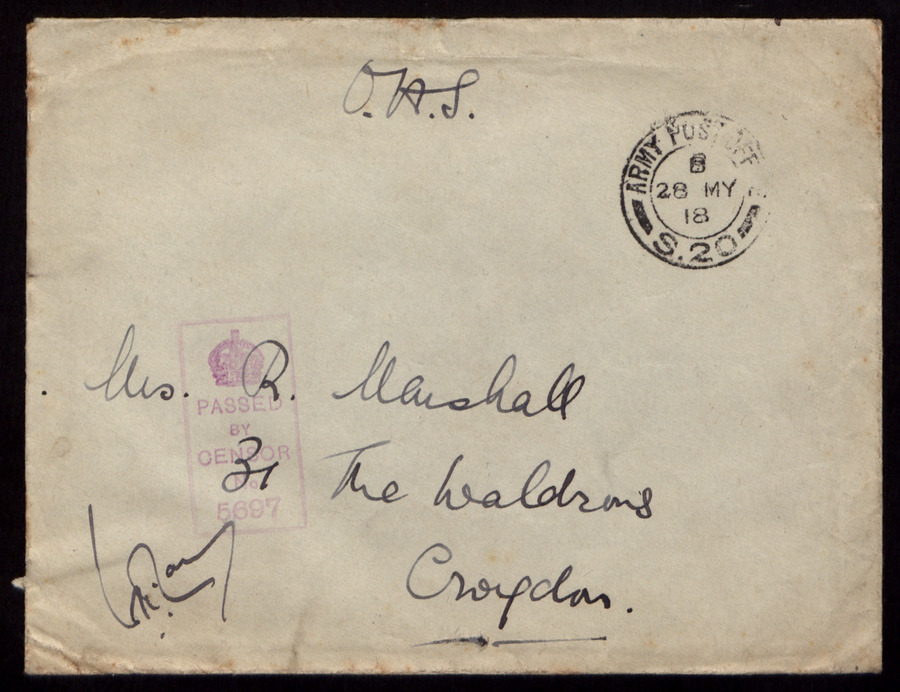 O.H.S.
ARMY POST OFF
B
28 MY
18
S.20
Mrs. R. Marshall
31 The Waldrons
Croydon.
PASSED
BY
CENSOR
No.
5697